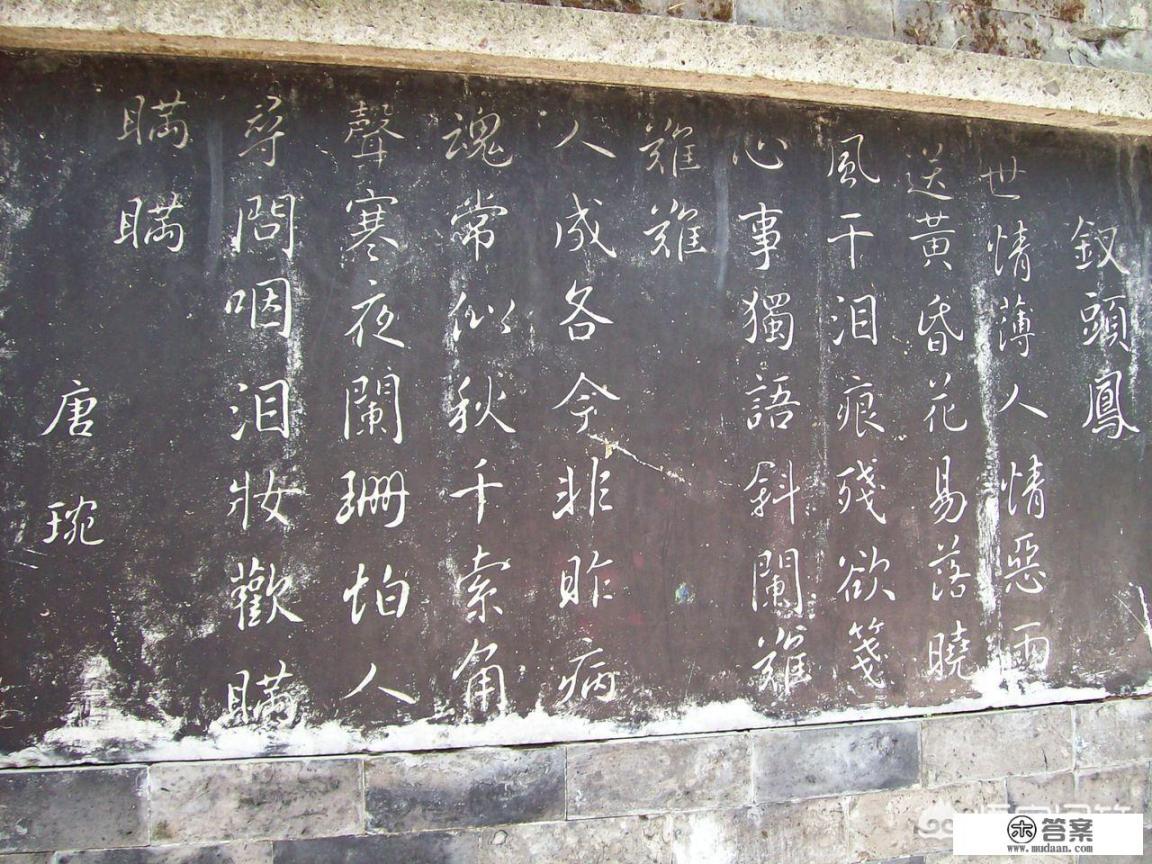 釵頭鳳
世情薄人情惡雨
送黃昏花易落曉
風干泪痕殘欲箋
心事獨語斜闌難
難難
人成各今非昨病
魂常似秋千索角
聲寒夜闌珊怕人
尋問咽泪妝歡瞞
瞞瞞
唐琬
答案
www.mudaan.com